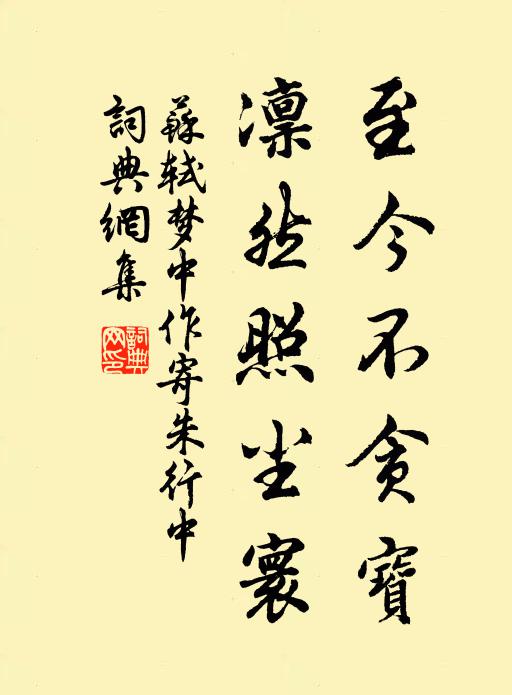 至今不貪寶
凛然照尘寰
蘇軾梦中作寄朱行中
詞典網集
詞典网印